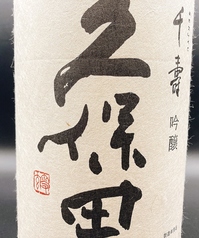 久保田
千壽
吟醸